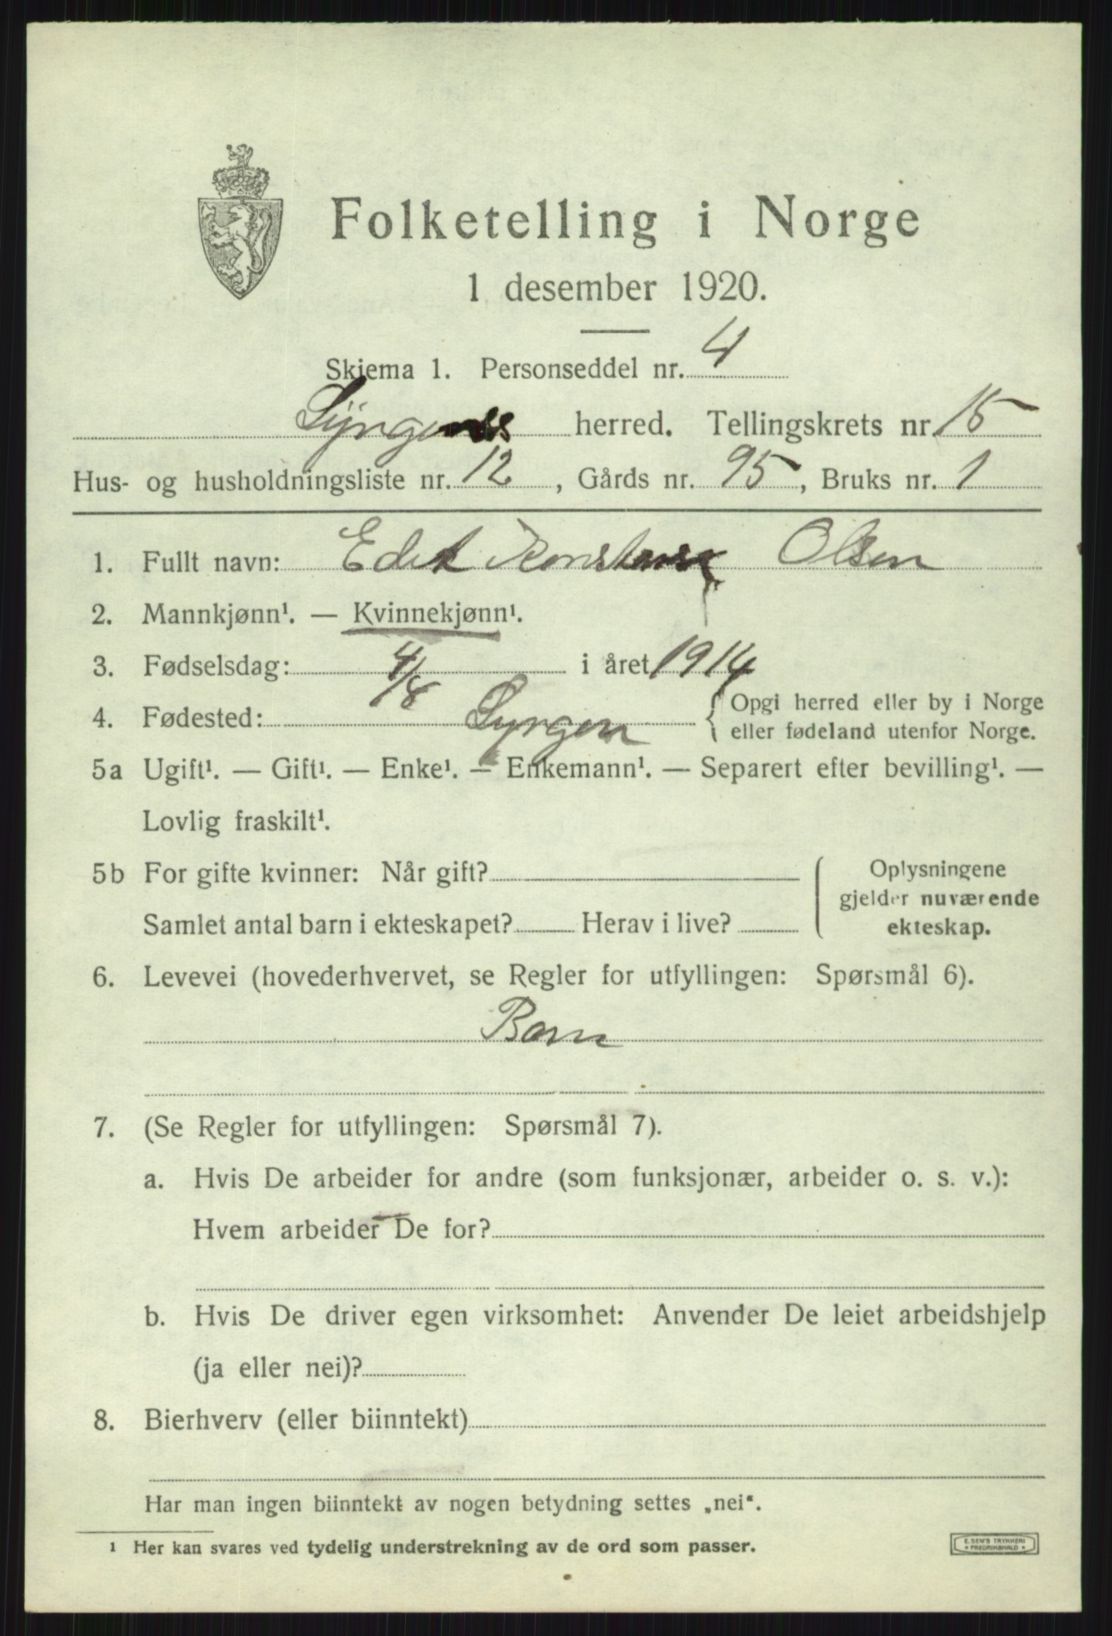 Folketelling i Norge
1 desember 1920.
Skjema 1. Personseddel nr. 4
Lyngen herred. Tellingskrets nr. 15
Hus- og husholdningsliste nr. 12, Gårds nr. 95, Bruks nr. 1
1. Fullt navn: Edit Olsen
2. Mannkjønn¹. — Kvinnekjønn¹.
3. Fødselsdag: 4/8 i året 1914
4. Fødested: Lyngen { Opgi herred eller by i Norge
eller fødeland utenfor Norge.
5a Ugift¹. — Gift¹. — Enke¹. — Enkemann¹. — Separert efter bevilling¹. —
Lovlig fraskilt¹.
5b For gifte kvinner: Når gift?
Samlet antal barn i ekteskapet? Herav i live?
Oplysningene
gjelder nuværende
ekteskap.
6. Levevei (hovederhvervet, se Regler for utfyllingen: Spørsmål 6).
Barn
7. (Se Regler for utfyllingen: Spørsmål 7).
a. Hvis De arbeider for andre (som funksjonær, arbeider o. s. v.):
Hvem arbeider De for?
b. Hvis De driver egen virksomhet: Anvender De leiet arbeidshjelp
(ja eller nei)?
8. Bierhverv (eller biinntekt)
Har man ingen biinntekt av nogen betydning settes „nei“.
¹ Her kan svares ved tydelig understrekning av de ord som passer.
E. SEM'S TRYKKERI
• FREDRIKSHALD •